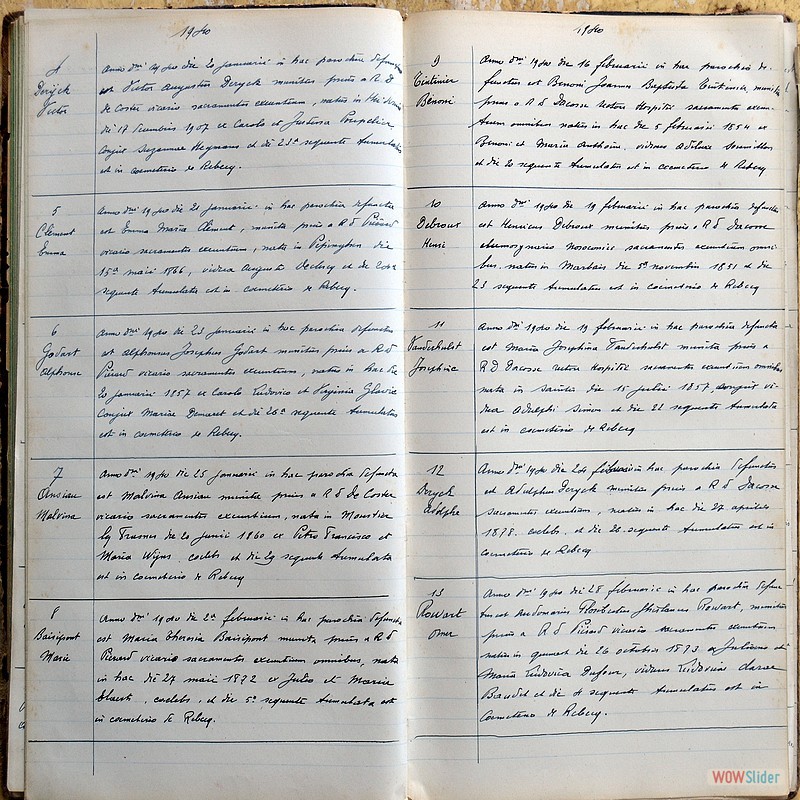 1940
4
Deryck
Victor
Anno dni 1940 die 20 januarii in hac parochia defunctus
est Victor Augustus Deryck munitus prius a R D
de Coster vicario sacramentis exeuntium, natus in
die 17 1907 ex Carolo et Justina
conjux Suzannae et die 23a sequente tumulatus
est in coemeterio de Rebecq.
5
Clément
Emma
Anno dni 1940 die 20 januarii in hac parochia defuncta
est Emma Maria Clément, munita prius a R d Piérard
vicario sacramentis exeuntium, nata in die
15a maii 1866, vidua Augusti et die
sequente tumulata est in coemeterio de Rebecq.
6
Godart
Alphonse
Anno dni 1940 die 23 januarii in hac parochia defunctus
est Alphonsus Josephus Godart munitus prius a R d
Piérard vicario sacramentis exeuntium, natus in hac die
20 januarii 1857 ex Carolo Ludovico et Virginia
conjux Mariae Demaret et die 26a sequente tumulatus
est in coemeterio de Rebecq.
7
Ansiau
Malvina
Anno dni 1940 die 25 januarii in hac parochia defuncta
est Malvina Ansiau munita prius a R d de Coster
vicario sacramentis exeuntium, nata in Moustier
lez Frasnes die 20 junii 1860 ex Petro Francisco et
Maria Wyns, coelebs et die 29 sequente tumulata
est in coemeterio de Rebecq
8
Baisipont
Marie
Anno dni 1940 die 2a februarii in hac parochia defuncta
est Maria Theresia Baisipont munita prius a R d
Piérard vicario sacramentis exeuntium omnibus, nata
in hac die 27 maii 1872 ex Julio et Maria
coelebs, et die 5a sequente tumulata est
in coemeterio de Rebecq.
1940
9
Bénoni
Anno dni 1940 die 16 februarii in hac parochia de-
functus est Benoni Joannes Baptista munitus
prius a R d Dacosse rectore Hospitii sacramentis exeun-
tium omnibus natus in hac die 5 februarii 1854 ex
Benoni et Maria viduus Adelinae
et die 20 sequente tumulatus est in coemeterio de Rebecq
10
Debroux
Henri
Anno dni 1940 die 19 februarii in hac parochia defunctus
est Henricus Debroux munitus prius a R d Dacosse
nosocomii sacramentis exeuntium omni-
bus, natus in Marbais die 5a novembris 1851 et die
23 sequente tumulatus est in coemeterio de Rebecq
11
Vanderhulst
Josephine
Anno dni 1940 die 19 februarii in hac parochia defuncta
est Maria Josephina Vanderhulst munita prius a
R D Dacosse rectore Hospitii sacramentis exeuntium omnibus
nata in die 15 julii 1857, conjux vi-
dua Adolphi Simon et die 22 sequente tumulata
est in coemeterio de Rebecq
12
Deryck
Adolphe
Anno dni 1940 die 24 februarii in hac parochia defunctus
est Adolphus Deryck munitus prius a R d Dacosse
sacramentis exeuntium, natus in hac die 27 aprilis
1878, coelebs, et die 26 sequente tumulatus est in
coemeterio de Rebecq
13
Rowart
Omer
Anno dni 1940 die 28 februarii in hac parochia defunc-
tus est Audomarus Ghislenus Rowart, munitus
prius a R d Piérard vicario sacramentis exeuntium
natus in die 26 octobris 1873 ex Juliano et
Maria Ludovica Dufour, viduus Ludovicae Clarae
Baudet et die 4 sequente tumulatus est in
coemeterio de Rebecq.
WOWSlider